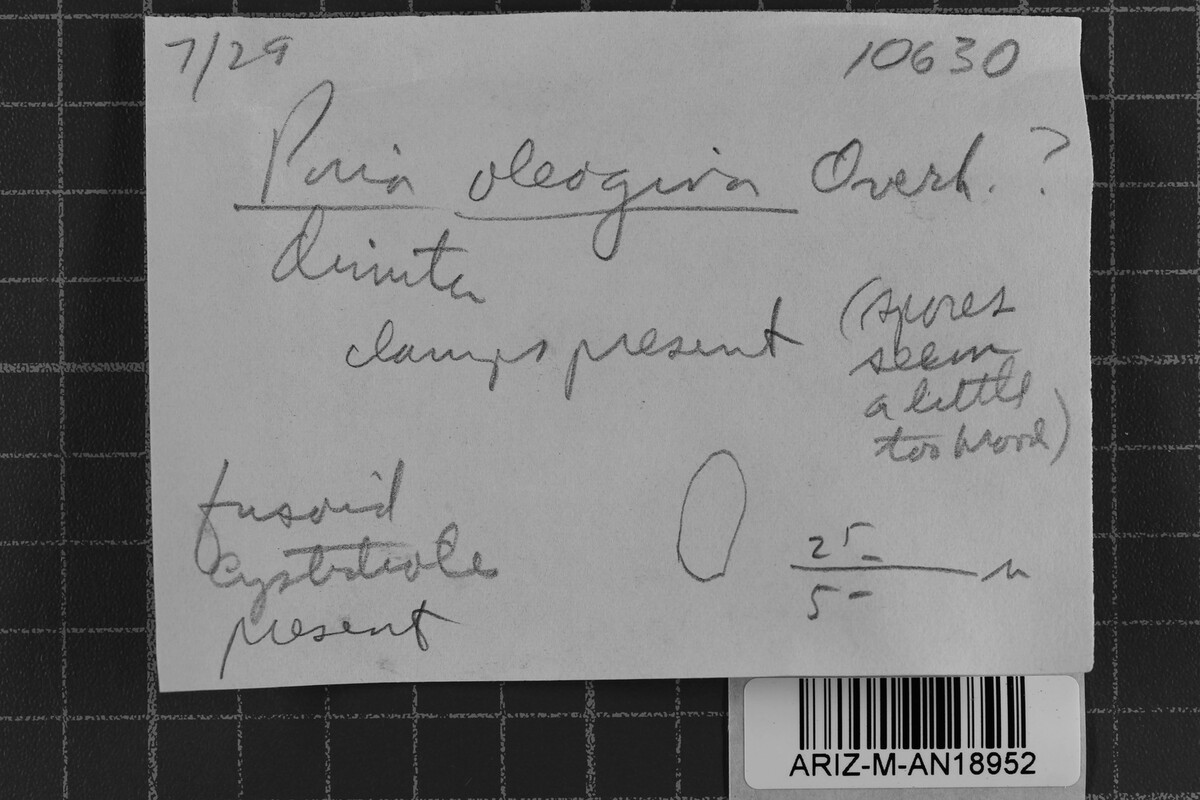 7/29 10630
Poria oleagina Overh. ?
dimitic
clamps present
(spores
seem
a little
too broad)
fusoid
cystidiole
present
25-
5-
ARIZ-M-AN18952